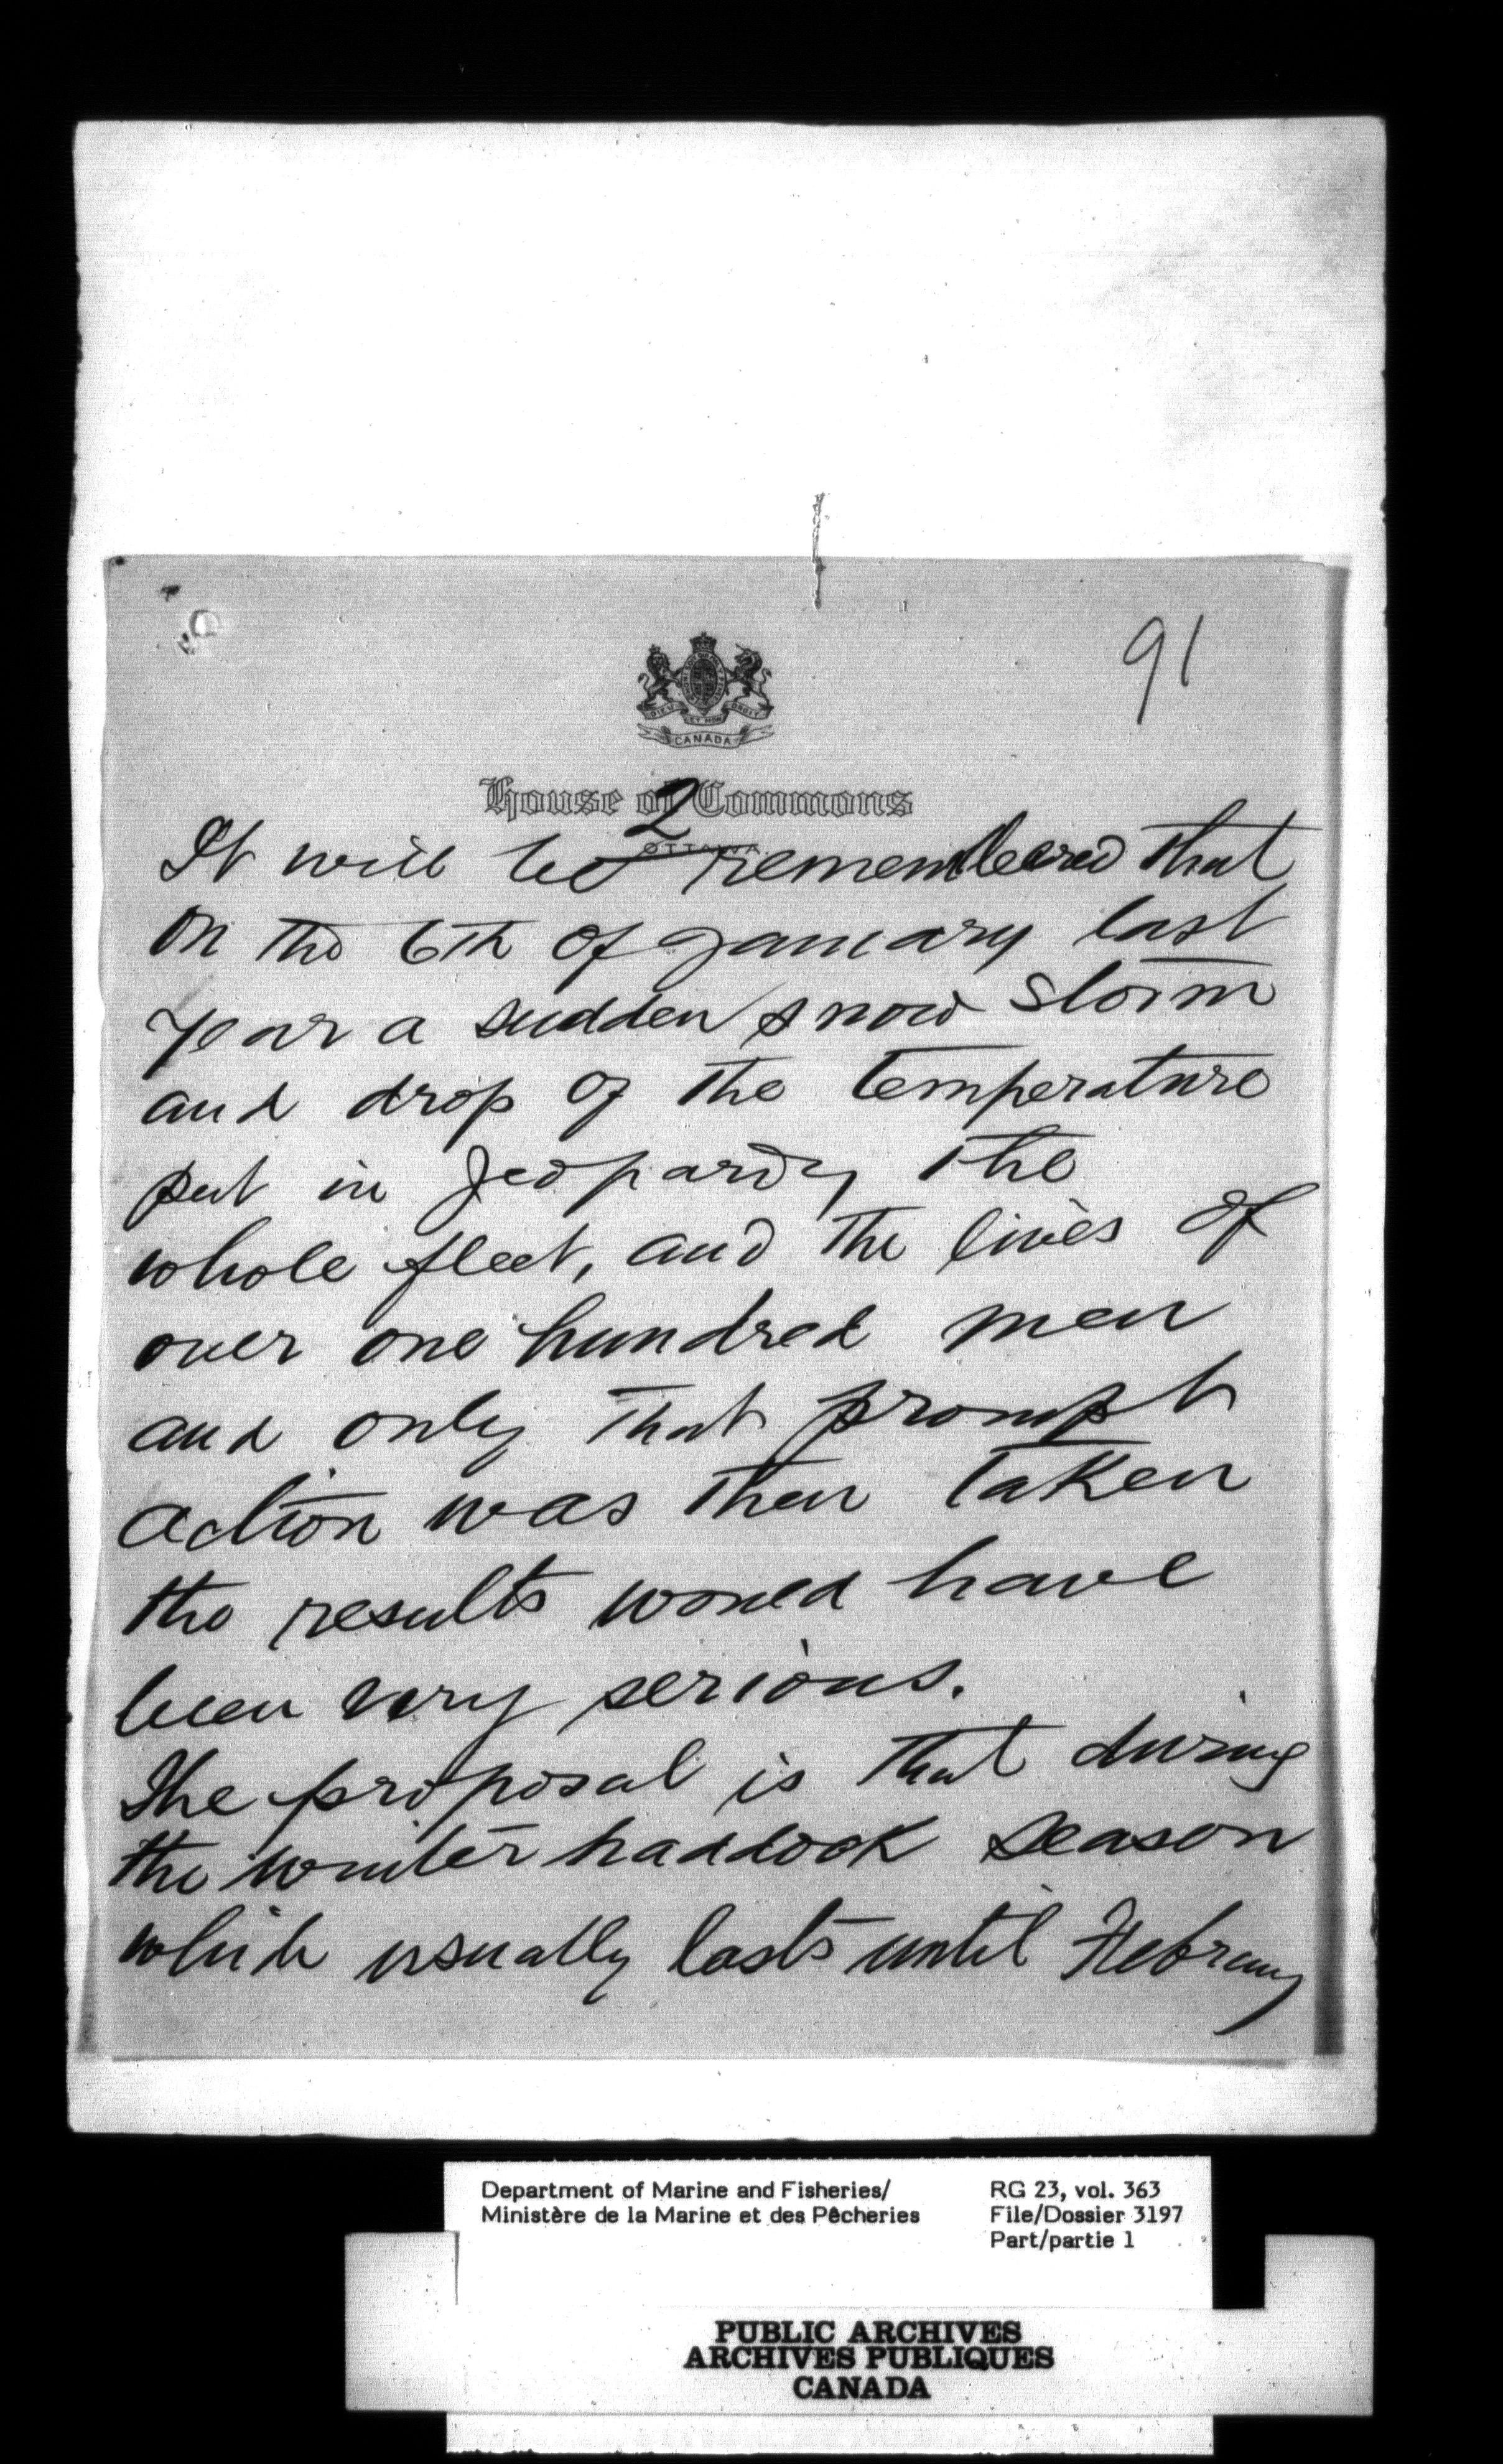 91
CANADA
House of Commons
OTTAWA
2
It will be remembered that
on the 6th of January last
year a sudden snow storm
and drop of the temperature
put in jeopardy the
whole fleet, and the lives of
over one hundred men
and only that prompt
action was then taken
the results would have
been very serious.
The proposal is that during
the winter haddock season
which usually lasts until Febrauy
Department of Marine and Fisheries/
Ministère de la Marine et des Pêcheries
RG 23, vol. 363
File/Dossier 3197
Part/partie 1
PUBLIC ARCHIVES
ARCHIVES PUBLIQUES
CANADA